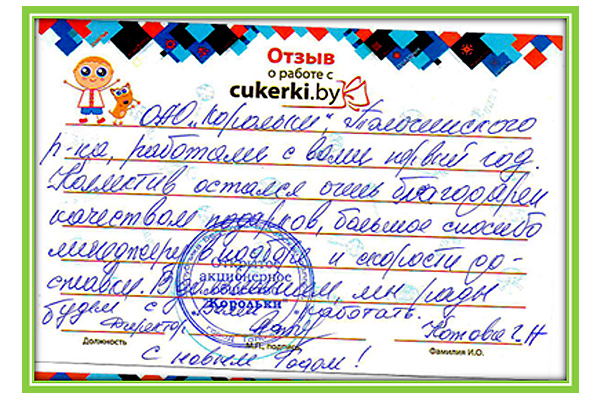 Отзыв
о работе с
cukerki.by
ОАО „Корольки", Толочинского
р-на, работаем с вами первый год.
Коллектив остался очень благодарен
качеством подарков, большое спасибо
менеджеру в подборе и скорости до-
ставки. В дальнейшем, мы рады
будем с Вами работать.
Директор Котова Г.Н
Должность М.П., подпись Фамилия И.О.
С новым Годом!
Открытое
акционерное
общество
"Корольки"